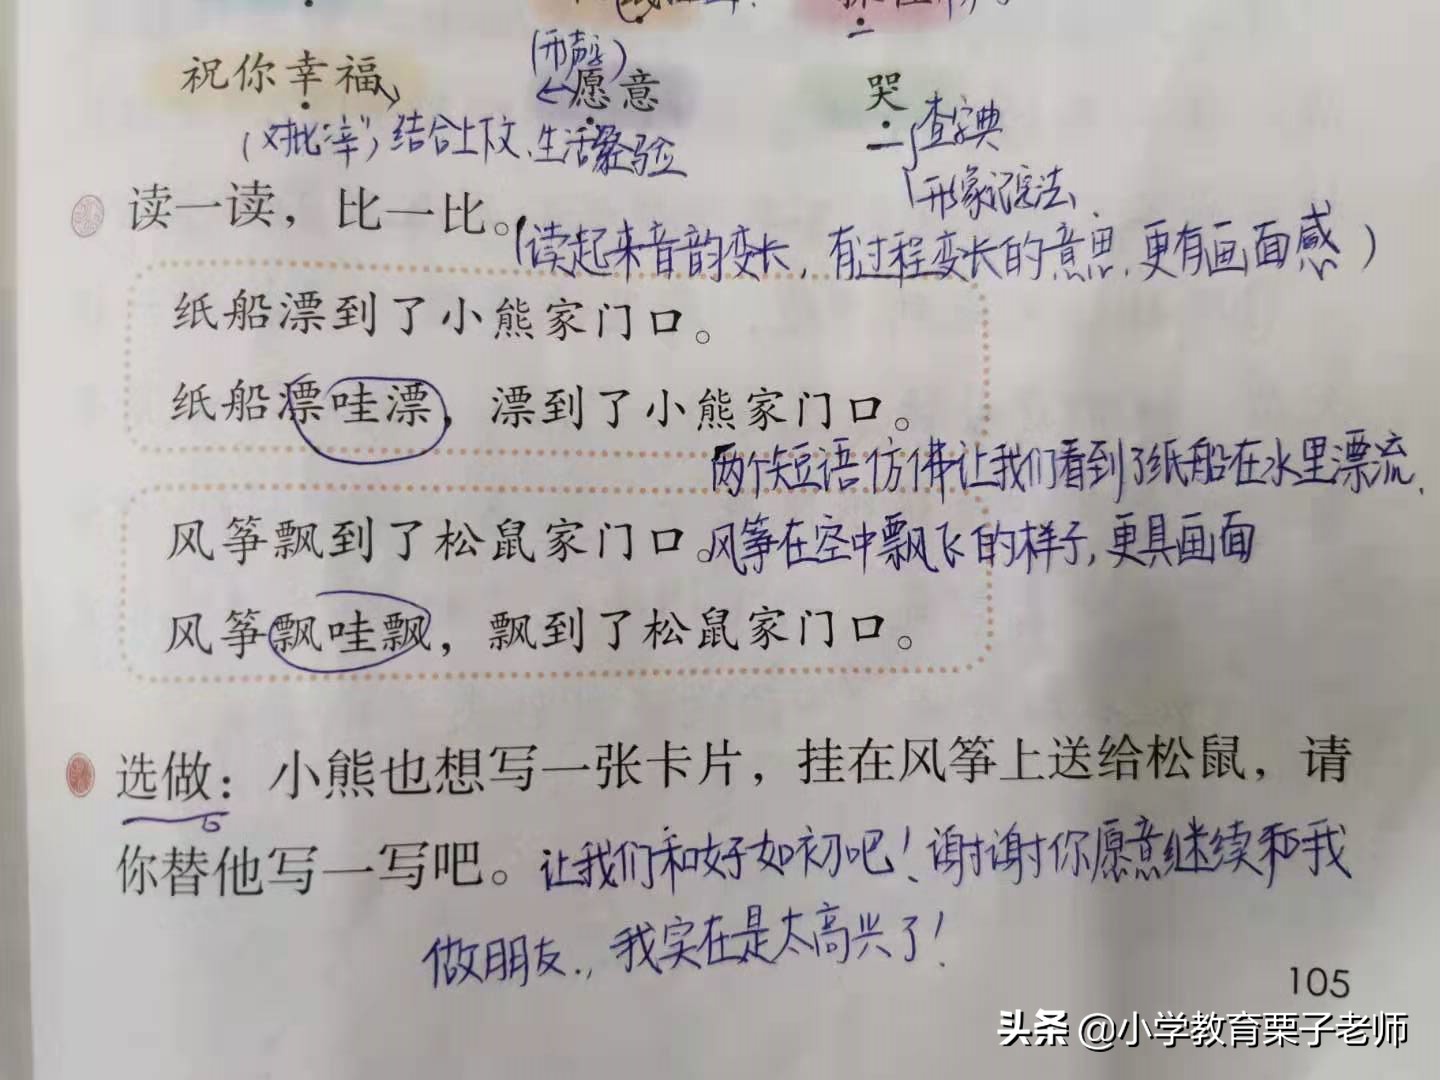 祝你幸福 愿意 哭
(形声字)
(对比"辛") 结合上下文、生活经验
查字典
形象记忆法
读一读，比一比。
(读起来音韵变长，有过程变长的意思，更有画面感)
纸船漂到了小熊家门口。
纸船漂哇漂，漂到了小熊家门口。
两个短语仿佛让我们看到了纸船在水里漂流，
风筝飘到了松鼠家门口。
风筝在空中飘飞的样子，更具画面
风筝飘哇飘，飘到了松鼠家门口。
选做：小熊也想写一张卡片，挂在风筝上送给松鼠，请
你替他写一写吧。
让我们和好如初吧！谢谢你愿意继续和我
做朋友，我实在是太高兴了！
105
头条 @小学教育栗子老师